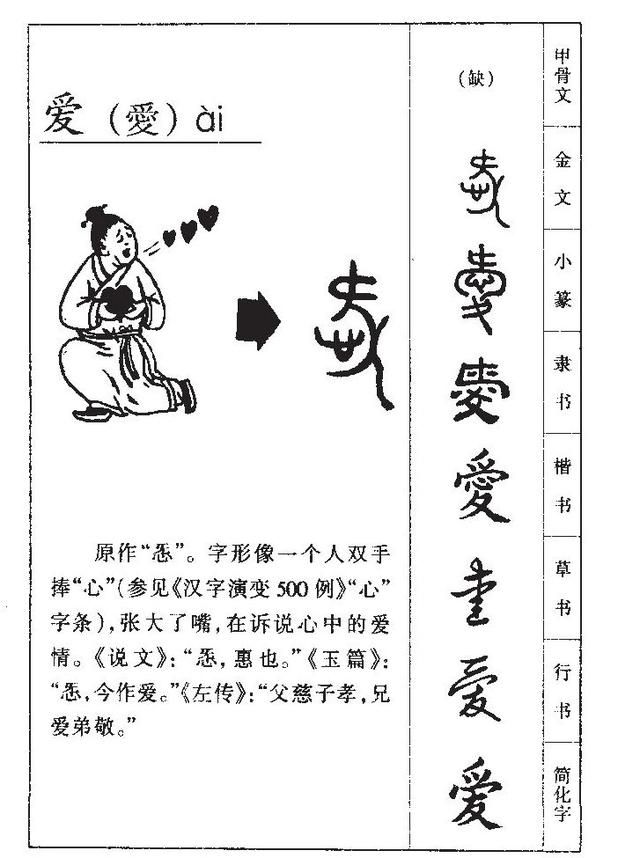 爱(愛)ài
原作“㤅”。字形像一个人双手
捧“心”(参见《汉字演变500例》“心”
字条),张大了嘴,在诉说心中的爱
情。《说文》:“㤅,惠也。”《玉篇》:
“㤅,今作爱。”《左传》:“父慈子孝,兄
爱弟敬。”
(缺)
甲骨文
㤅
金文
愛
小篆
愛
隶书
愛
楷书
草书
爱
行书
爱
简化字